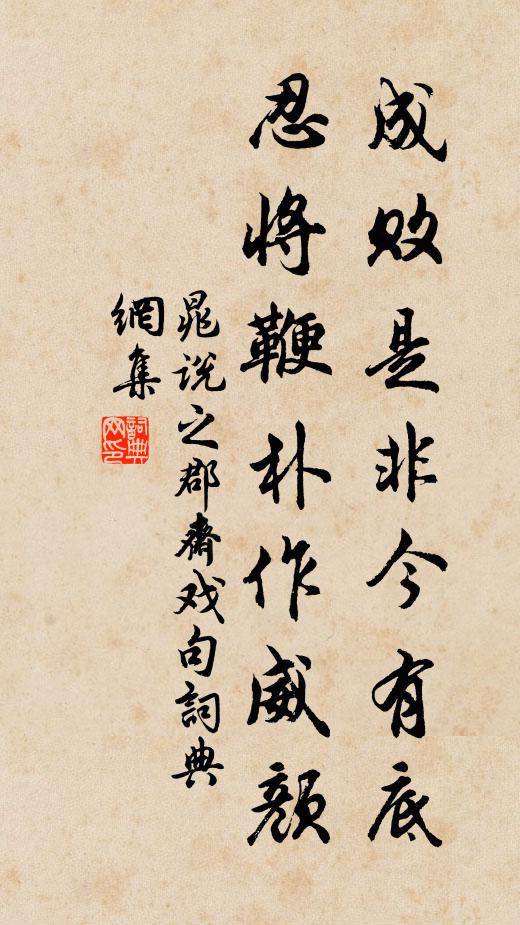 成败是非今有底
忍将鞭朴作威颜
晁说之郡斋戏句詞典
網集
詞典網印